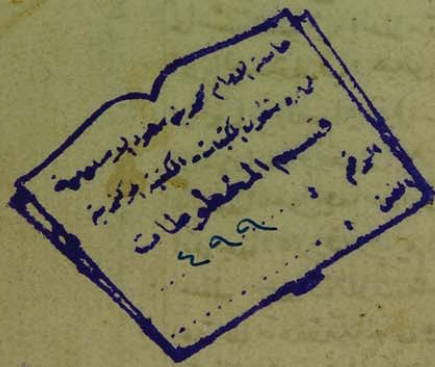 جامعة الإمام محمد بن سعود الإسلامية
عمادة شؤون المكتبات - المكتبة المركزية
قسم المخطوطات
الرقم : ٤٩٩
الفن :